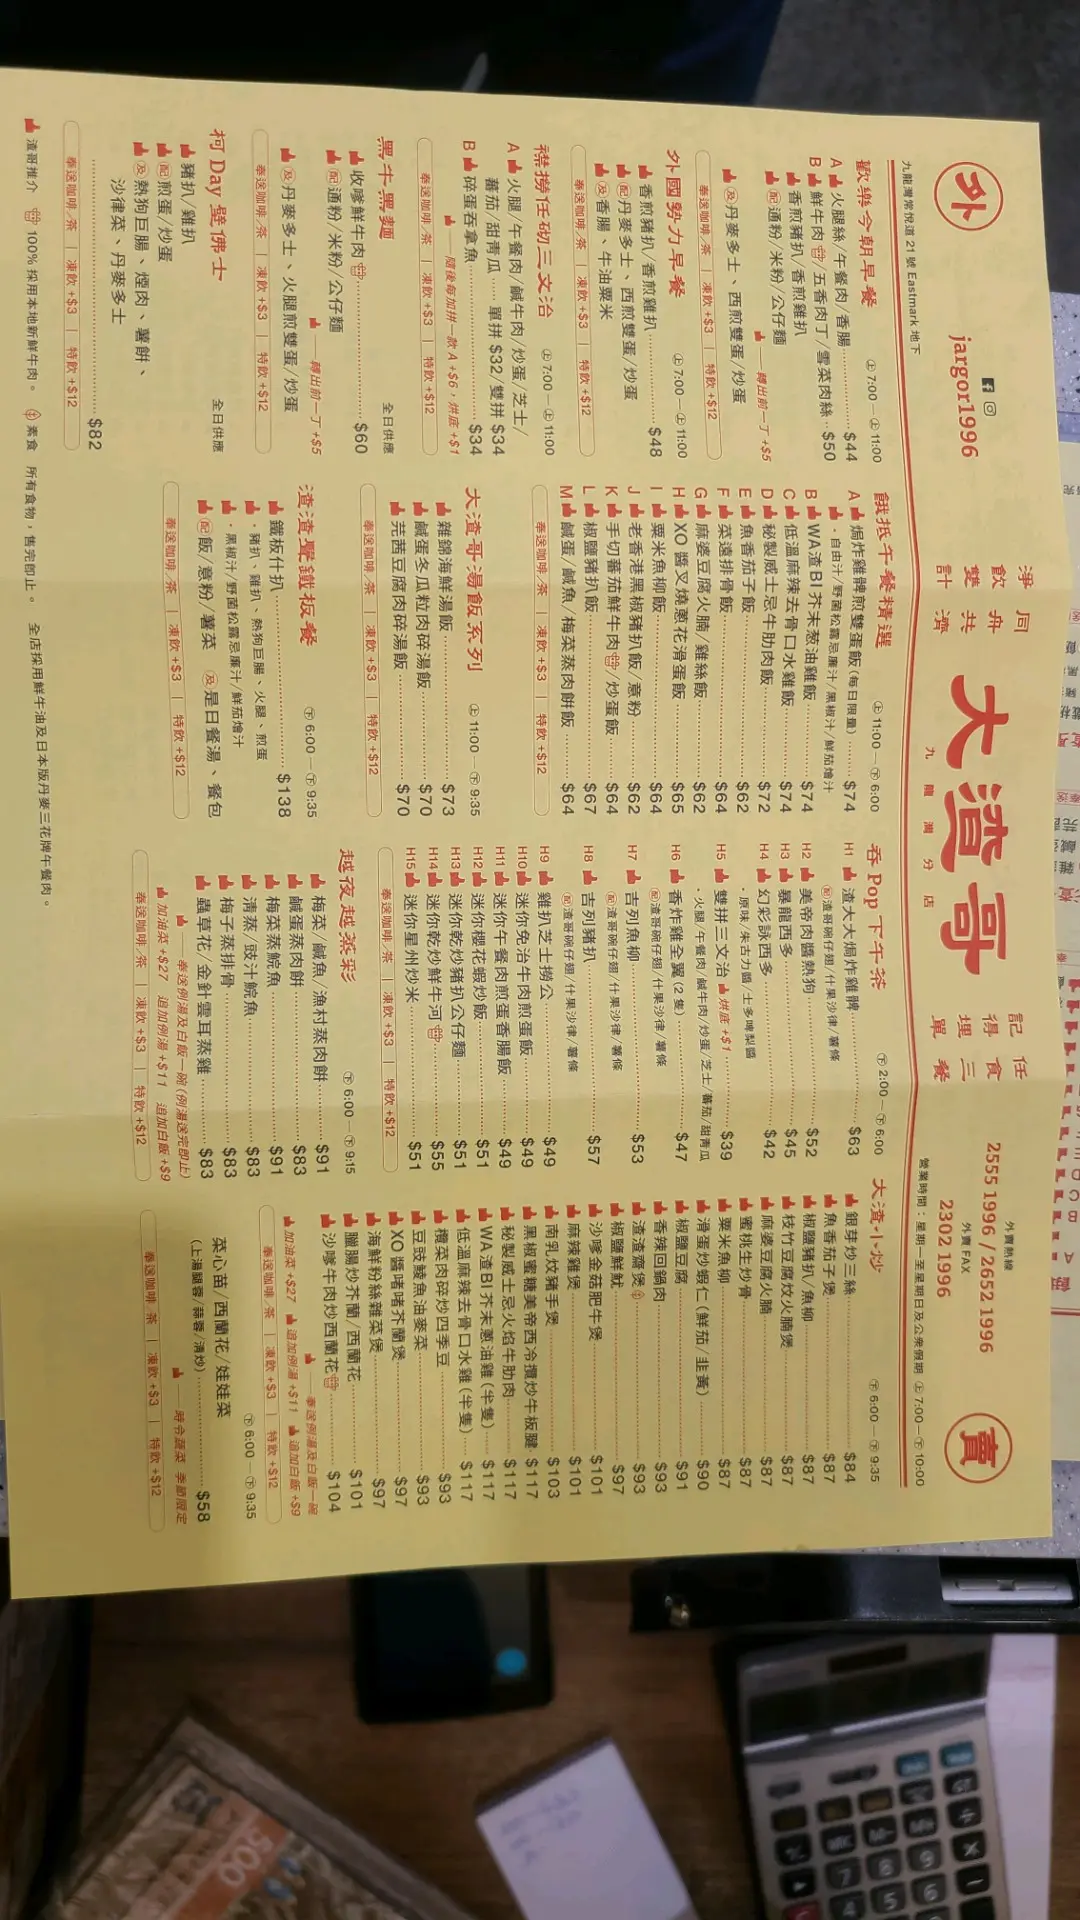 外
賣
jargor1996
九龍灣常悅道 21 號 Eastmark 地下
淨飲雙計
同舟共濟
大渣哥
九龍灣分店
記得埋單
任食三餐
外賣熱線
2555 1996 / 2652 1996
外賣 FAX
2302 1996
營業時間：星期一至星期日及公衆假期 上 7:00 — 下 10:00
歡樂今朝早餐 上 7:00 — 上 11:00
A 火腿絲/午餐肉/香腸 $44
B 鮮牛肉/五香肉丁/雪菜肉絲 $50
香煎豬扒/香煎雞扒
配 通粉/米粉/公仔麵
轉出前一丁 +$5
及 丹麥多士、西煎雙蛋/炒蛋
奉送咖啡/茶 | 凍飲 +$3 | 特飲 +$12
外國勢力早餐 上 7:00 — 上 11:00
香煎豬扒/香煎雞扒 $48
配 丹麥多士、西煎雙蛋/炒蛋
及 香腸、牛油粟米
奉送咖啡/茶 | 凍飲 +$3 | 特飲 +$12
襟撈任砌三文治 上 7:00 — 上 11:00
A 火腿/午餐肉/鹹牛肉/炒蛋/芝士/
蕃茄/甜青瓜 單拼 $32/雙拼 $34
B 碎蛋吞拿魚 $34
隨後每加拼一款 A +$6，烘底 +$1
奉送咖啡/茶 | 凍飲 +$3 | 特飲 +$12
黑牛黑麵 全日供應
收嗲鮮牛肉 $60
配 通粉/米粉/公仔麵
轉出前一丁 +$5
及 丹麥多士、火腿煎雙蛋/炒蛋
奉送咖啡/茶 | 凍飲 +$3 | 特飲 +$12
柯 Day 壁佛士 全日供應
豬扒/雞扒
配 煎蛋/炒蛋
及 熱狗巨腸、煙肉、薯餅、
沙律菜、丹麥多士
$82
奉送咖啡/茶 | 凍飲 +$3 | 特飲 +$12
餓抵午餐精選 上 11:00 — 下 6:00
A 焗炸雞髀煎雙蛋飯 (每日限量) $74
・自由汁/野菌松露忌廉汁/黑椒汁/鮮茄燴汁
B WA渣BI芥末葱油雞飯 $74
C 低溫麻辣去骨口水雞飯 $74
D 秘製威士忌牛肋肉飯 $72
E 魚香茄子飯 $62
F 菜遠排骨飯 $64
G 麻婆豆腐火腩/雞絲飯 $62
H XO醬叉燒蔥花滑蛋飯 $65
I 粟米魚柳飯 $64
J 老香港黑椒豬扒飯/意粉 $62
K 手切蕃茄鮮牛肉/炒蛋飯 $64
L 椒鹽豬扒飯 $67
M 鹹蛋/鹹魚/梅菜蒸肉餅飯 $64
奉送咖啡/茶 | 凍飲 +$3 | 特飲 +$12
大渣哥湯飯系列 上 11:00 — 下 9:35
雜錦海鮮湯飯 $73
鹹蛋冬瓜粒肉碎湯飯 $70
芫茜豆腐肉碎湯飯 $70
奉送咖啡/茶 | 凍飲 +$3 | 特飲 +$12
渣渣聲鐵板餐 下 6:00 — 下 9:35
鐵板什扒 $138
・豬扒、雞扒、熱狗巨腸、火腿、煎蛋
・黑椒汁/野菌松露忌廉汁/鮮茄燴汁
配 飯/意粉/薯菜 及 是日餐湯、餐包
奉送咖啡/茶 | 凍飲 +$3 | 特飲 +$12
呑 Pop 下午茶 下 2:00 — 下 6:00
H1 渣大大焗炸雞髀 $63
配 渣哥碗仔翅/什果沙律/薯條
H2 美帝肉醬熱狗 $52
H3 暴龍西多 $45
H4 幻彩詠西多 $42
・原味/朱古力醬/士多啤梨醬
H5 雙拼三文治 烘底 +$1 $39
・火腿/午餐肉/鹹牛肉/炒蛋/芝士/蕃茄/甜青瓜
H6 香炸雞全翼 (2隻) $47
配 渣哥碗仔翅/什果沙律/薯條
H7 吉列魚柳 $53
配 渣哥碗仔翅/什果沙律/薯條
H8 吉列豬扒 $57
配 渣哥碗仔翅/什果沙律/薯條
H9 雞扒芝士撈公 $49
H10 迷你免治牛肉煎蛋飯 $49
H11 迷你午餐肉煎蛋香腸飯 $49
H12 迷你櫻花蝦炒飯 $51
H13 迷你乾炒豬扒公仔麵 $51
H14 迷你乾炒鮮牛河 $55
H15 迷你星州炒米 $51
奉送咖啡/茶 | 凍飲 +$3 | 特飲 +$12
越夜越蒸彩 下 6:00 — 下 9:15
梅菜/鹹魚/漁村蒸肉餅 $91
鹹蛋蒸肉餅 $83
梅菜蒸鯇魚 $91
清蒸/豉汁鯇魚 $83
梅子蒸排骨 $83
蟲草花/金針雲耳蒸雞 $83
奉送例湯及白飯一碗 (例湯送完即止)
加油菜 +$27 追加例湯 +$11 追加白飯 +$9
奉送咖啡/茶 | 凍飲 +$3 | 特飲 +$12
大渣小炒 下 6:00 — 下 9:35
銀芽炒三絲 $84
魚香茄子煲 $87
椒鹽豬扒/魚柳 $87
枝竹豆腐炆火腩煲 $87
麻婆豆腐火腩 $87
蜜桃生炒骨 $87
粟米魚柳 $87
滑蛋炒蝦仁 (鮮茄/韭黃) $90
椒鹽豆腐 $91
香辣回鍋肉 $93
渣渣齋煲 $93
椒鹽鮮魷 $97
沙嗲金菇肥牛煲 $101
麻辣雞煲 $101
南乳炆豬手煲 $103
黑椒蜜糖美帝西冷攪炒牛板腱 $117
秘製威士忌火焰牛肋肉 $117
WA渣BI芥末蔥油雞 (半隻) $117
低溫麻辣去骨口水雞 (半隻) $117
欖菜肉碎炒四季豆 $93
豆豉鯪魚油麥菜 $93
XO醬啫啫芥蘭煲 $97
海鮮粉絲雜菜煲 $97
臘腸炒芥蘭/西蘭花 $101
沙嗲牛肉炒西蘭花 $104
奉送例湯及白飯一碗
加油菜 +$27 追加例湯 +$11 追加白飯 +$9
奉送咖啡/茶 | 凍飲 +$3 | 特飲 +$12
下 6:00 — 下 9:35
菜心苗/西蘭花/娃娃菜
(上湯腿蓉/蒜蓉/清炒) $58
時令蔬菜 季節限定
奉送咖啡/茶 | 凍飲 +$3 | 特飲 +$12
渣哥推介 100% 採用本地新鮮牛肉。 素食 所有食物，售完即止。 全店採用鮮牛油及日本版丹麥三花牌午餐肉。
500